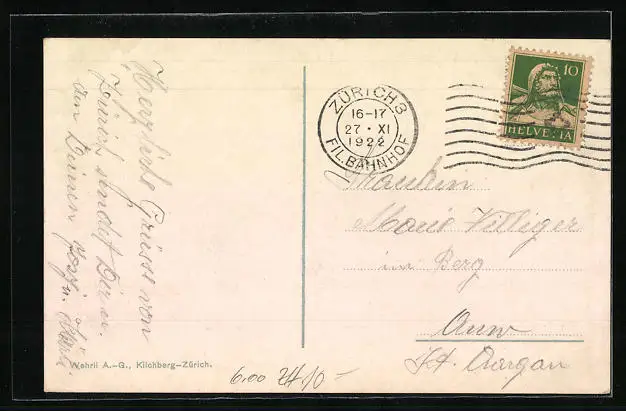 Herzliche Grüsse von
Zürich sendet Dir u.
den Deinen
ZÜRICH 3
16-17
27 · XI
1922
FIL. BAHNHOF
10
HELVETIA
Fräulein
Marie Villiger
im Berg
Auw
Kt. Aargau
Wehrli A.-G., Kilchberg-Zürich.
6.00